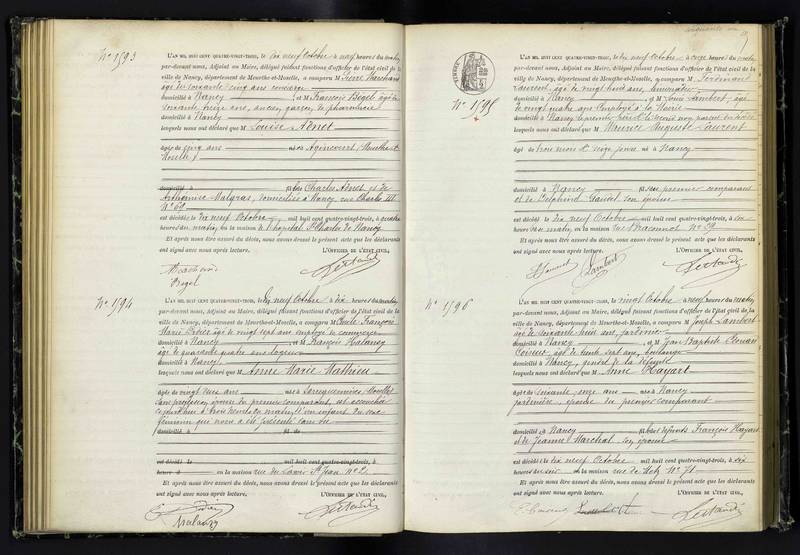 N° 1593
L'AN MIL HUIT CENT QUATRE-VINGT-TROIS, le dix neuf Octobre à neuf heures du matin,
par-devant nous, Adjoint au Maire, délégué faisant fonctions d'officier de l'état civil de la
ville de Nancy, département de Meurthe-et-Moselle, a comparu M Pierre Marchand
âgé de soixante cinq ans concierge
domicilié à Nancy, et M François Bogel âgé de
soixante treize ans, ancien garçon de pharmacie
domicilié à Nancy
lesquels nous ont déclaré que M Louise Adnet
âgée de cinq ans née à Agincourt, Meurthe et
Moselle
domicilié à fille de Charles Adnet et de
Malgras, domiciliés à Nancy rue Charles III
N° 69
est décédée le dix neuf Octobre mil huit cent quatre-vingt-trois, à quatre
heures du matin, en la maison de l'hôpital St Charles de Nancy
Et après nous être assuré du décès, nous avons dressé le présent acte que les déclarants
ont signé avec nous après lecture. L'OFFICIER DE L'ÉTAT CIVIL,
Marchand
Bogel
N° 1594
L'AN MIL HUIT CENT QUATRE-VINGT-TROIS, le dix neuf Octobre à dix heures du matin,
par-devant nous, Adjoint au Maire, délégué faisant fonctions d'officier de l'état civil de la
ville de Nancy, département de Meurthe-et-Moselle, a comparu M Emile François
Marie âgé de vingt sept ans employé de commerce
domicilié à Nancy, et M François Halancy
âgé de quarante quatre ans logeur
domicilié à Nancy
lesquels nous ont déclaré que M Anne Marie Mathieu
âgée de vingt ans née à Sarreguemines Moselle
sans profession épouse du premier comparant, est accouchée
aujourd'hui à trois heures du matin, d'un enfant du sexe
féminin qui nous a été présenté sans vie
domicilié à fil de
est décédé le mil huit cent quatre-vingt-trois, à
heures en la maison rue St Jean N° 2
Et après nous être assuré du décès, nous avons dressé le présent acte que les déclarants
ont signé avec nous après lecture. L'OFFICIER DE L'ÉTAT CIVIL,
N° 1595
L'AN MIL HUIT CENT QUATRE-VINGT-TROIS, le dix neuf Octobre à onze heures du matin,
par-devant nous, Adjoint au Maire, délégué faisant fonctions d'officier de l'état civil de la
ville de Nancy, département de Meurthe-et-Moselle, a comparu M Ferdinand
Laurent, âgé de vingt huit ans,
domicilié à Nancy, et M Louis Lambert, âgé
de vingt quatre ans employé à la Mairie
domicilié à Nancy le premier père et le second non parent du décédé
lesquels nous ont déclaré que M Maurice Auguste Laurent
âgé de trois mois et seize jours né à Nancy
domicilié à Nancy fils du premier comparant
et de Delphine Gaudel son épouse
est décédé le dix neuf Octobre mil huit cent quatre-vingt-trois, à six
heures du matin, en la maison rue Braconnot N° 29
Et après nous être assuré du décès, nous avons dressé le présent acte que les déclarants
ont signé avec nous après lecture. L'OFFICIER DE L'ÉTAT CIVIL,
Laurent
Lambert
N° 1596
L'AN MIL HUIT CENT QUATRE-VINGT-TROIS, le vingt Octobre à neuf heures du matin,
par-devant nous, Adjoint au Maire, délégué faisant fonctions d'officier de l'état civil de la
ville de Nancy, département de Meurthe-et-Moselle, a comparu M Joseph Lambert
âgé de soixante huit ans,
domicilié à Nancy, et M Jean Baptiste
âgé de trente sept ans, boulanger
domicilié à Nancy, gendre de la défunte
lesquels nous ont déclaré que M Anne Hayart
âgée de soixante onze ans née à Nancy
jardinière, épouse du premier comparant
domiciliée à Nancy fille des défunts François Hayart
et de Jeanne Marchal son épouse
est décédée le dix neuf Octobre mil huit cent quatre-vingt-trois, à dix
heures du soir en la maison rue de Metz N° 71
Et après nous être assuré du décès, nous avons dressé le présent acte que les déclarants
ont signé avec nous après lecture. L'OFFICIER DE L'ÉTAT CIVIL,